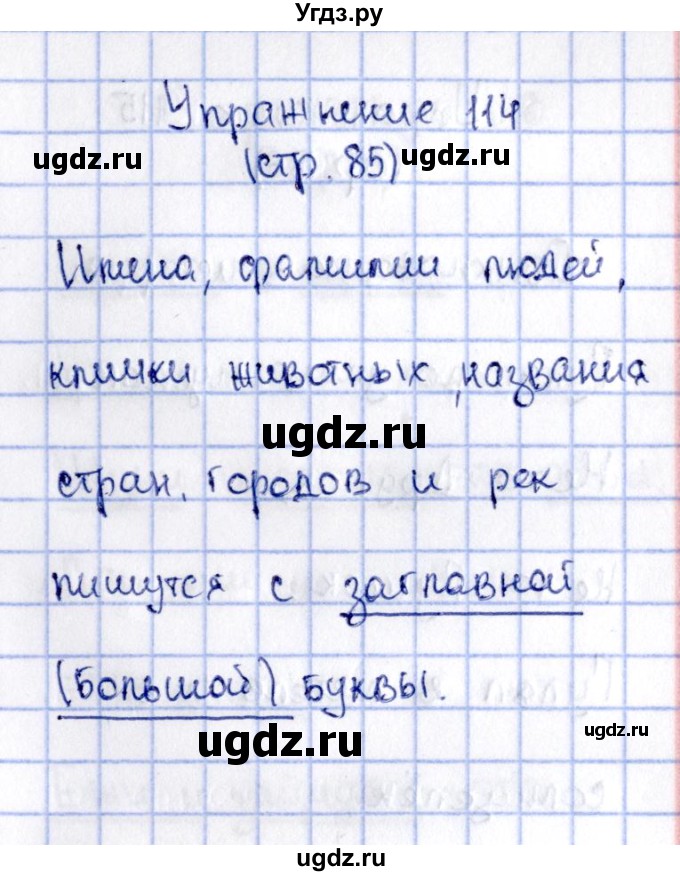 Угдз.ру
Упражнение 114
ugdz.ru (стр. 85) ugdz.ru
Имена, фамилии людей,
клички животных, названия
ugdz.ru
стран, городов и рек
пишутся с заглавной
(большой) буквы.
ugdz.ru
ugdz.ru